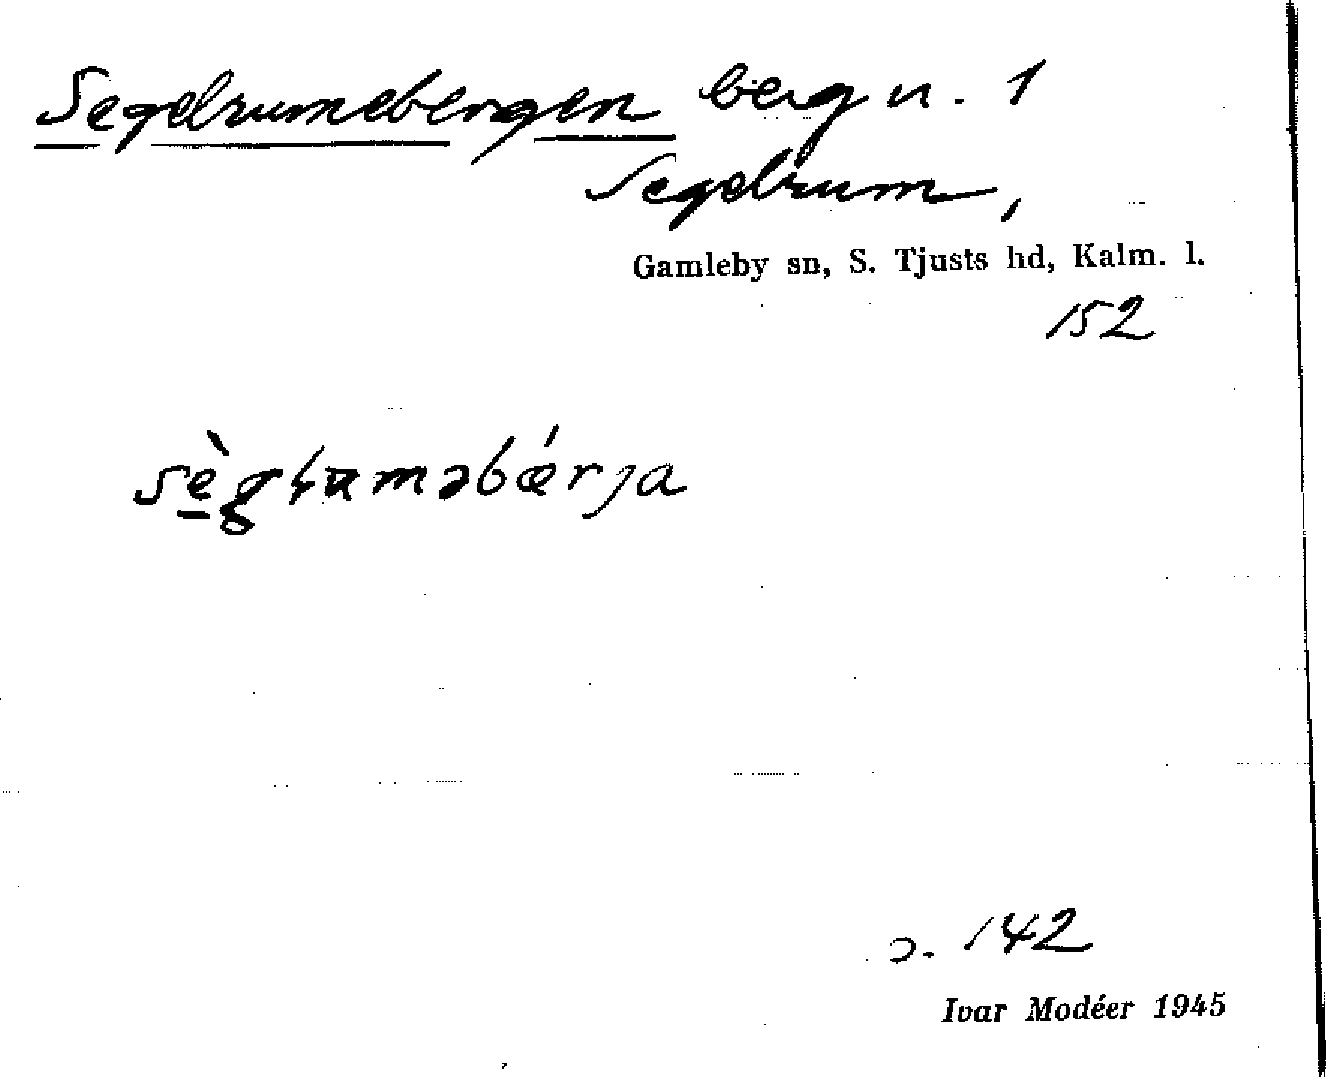 Segdrumebergen berg n. 1
Segdrum,
Gamleby sn, S. Tjusts hd, Kalm. l.
152
142
Ivar Modéer 1945